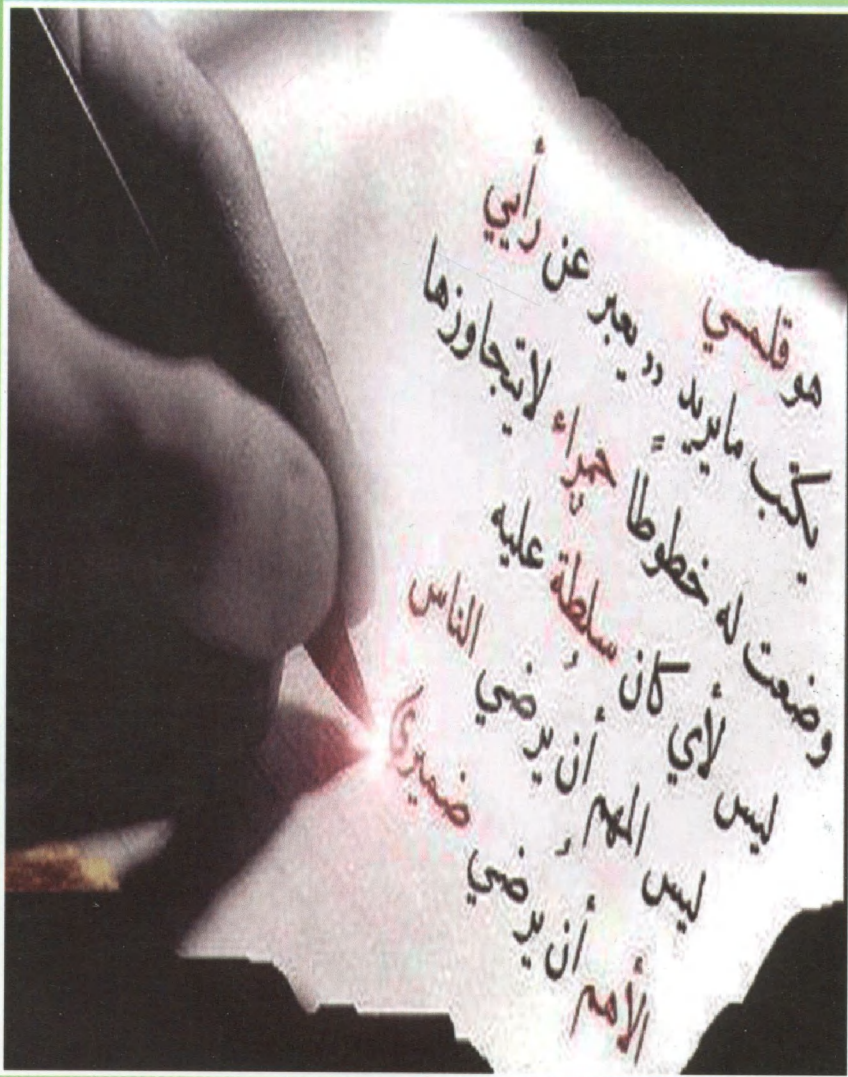 هو قلمي
يكتب مايريد ,, يعبر عن رأيي
وضعت له خطوطاً حمراء لايتجاوزها
ليس لأي كان سلطة عليه
ليس المهم أن يرضي الناس
الأهم أن يرضي ضميري